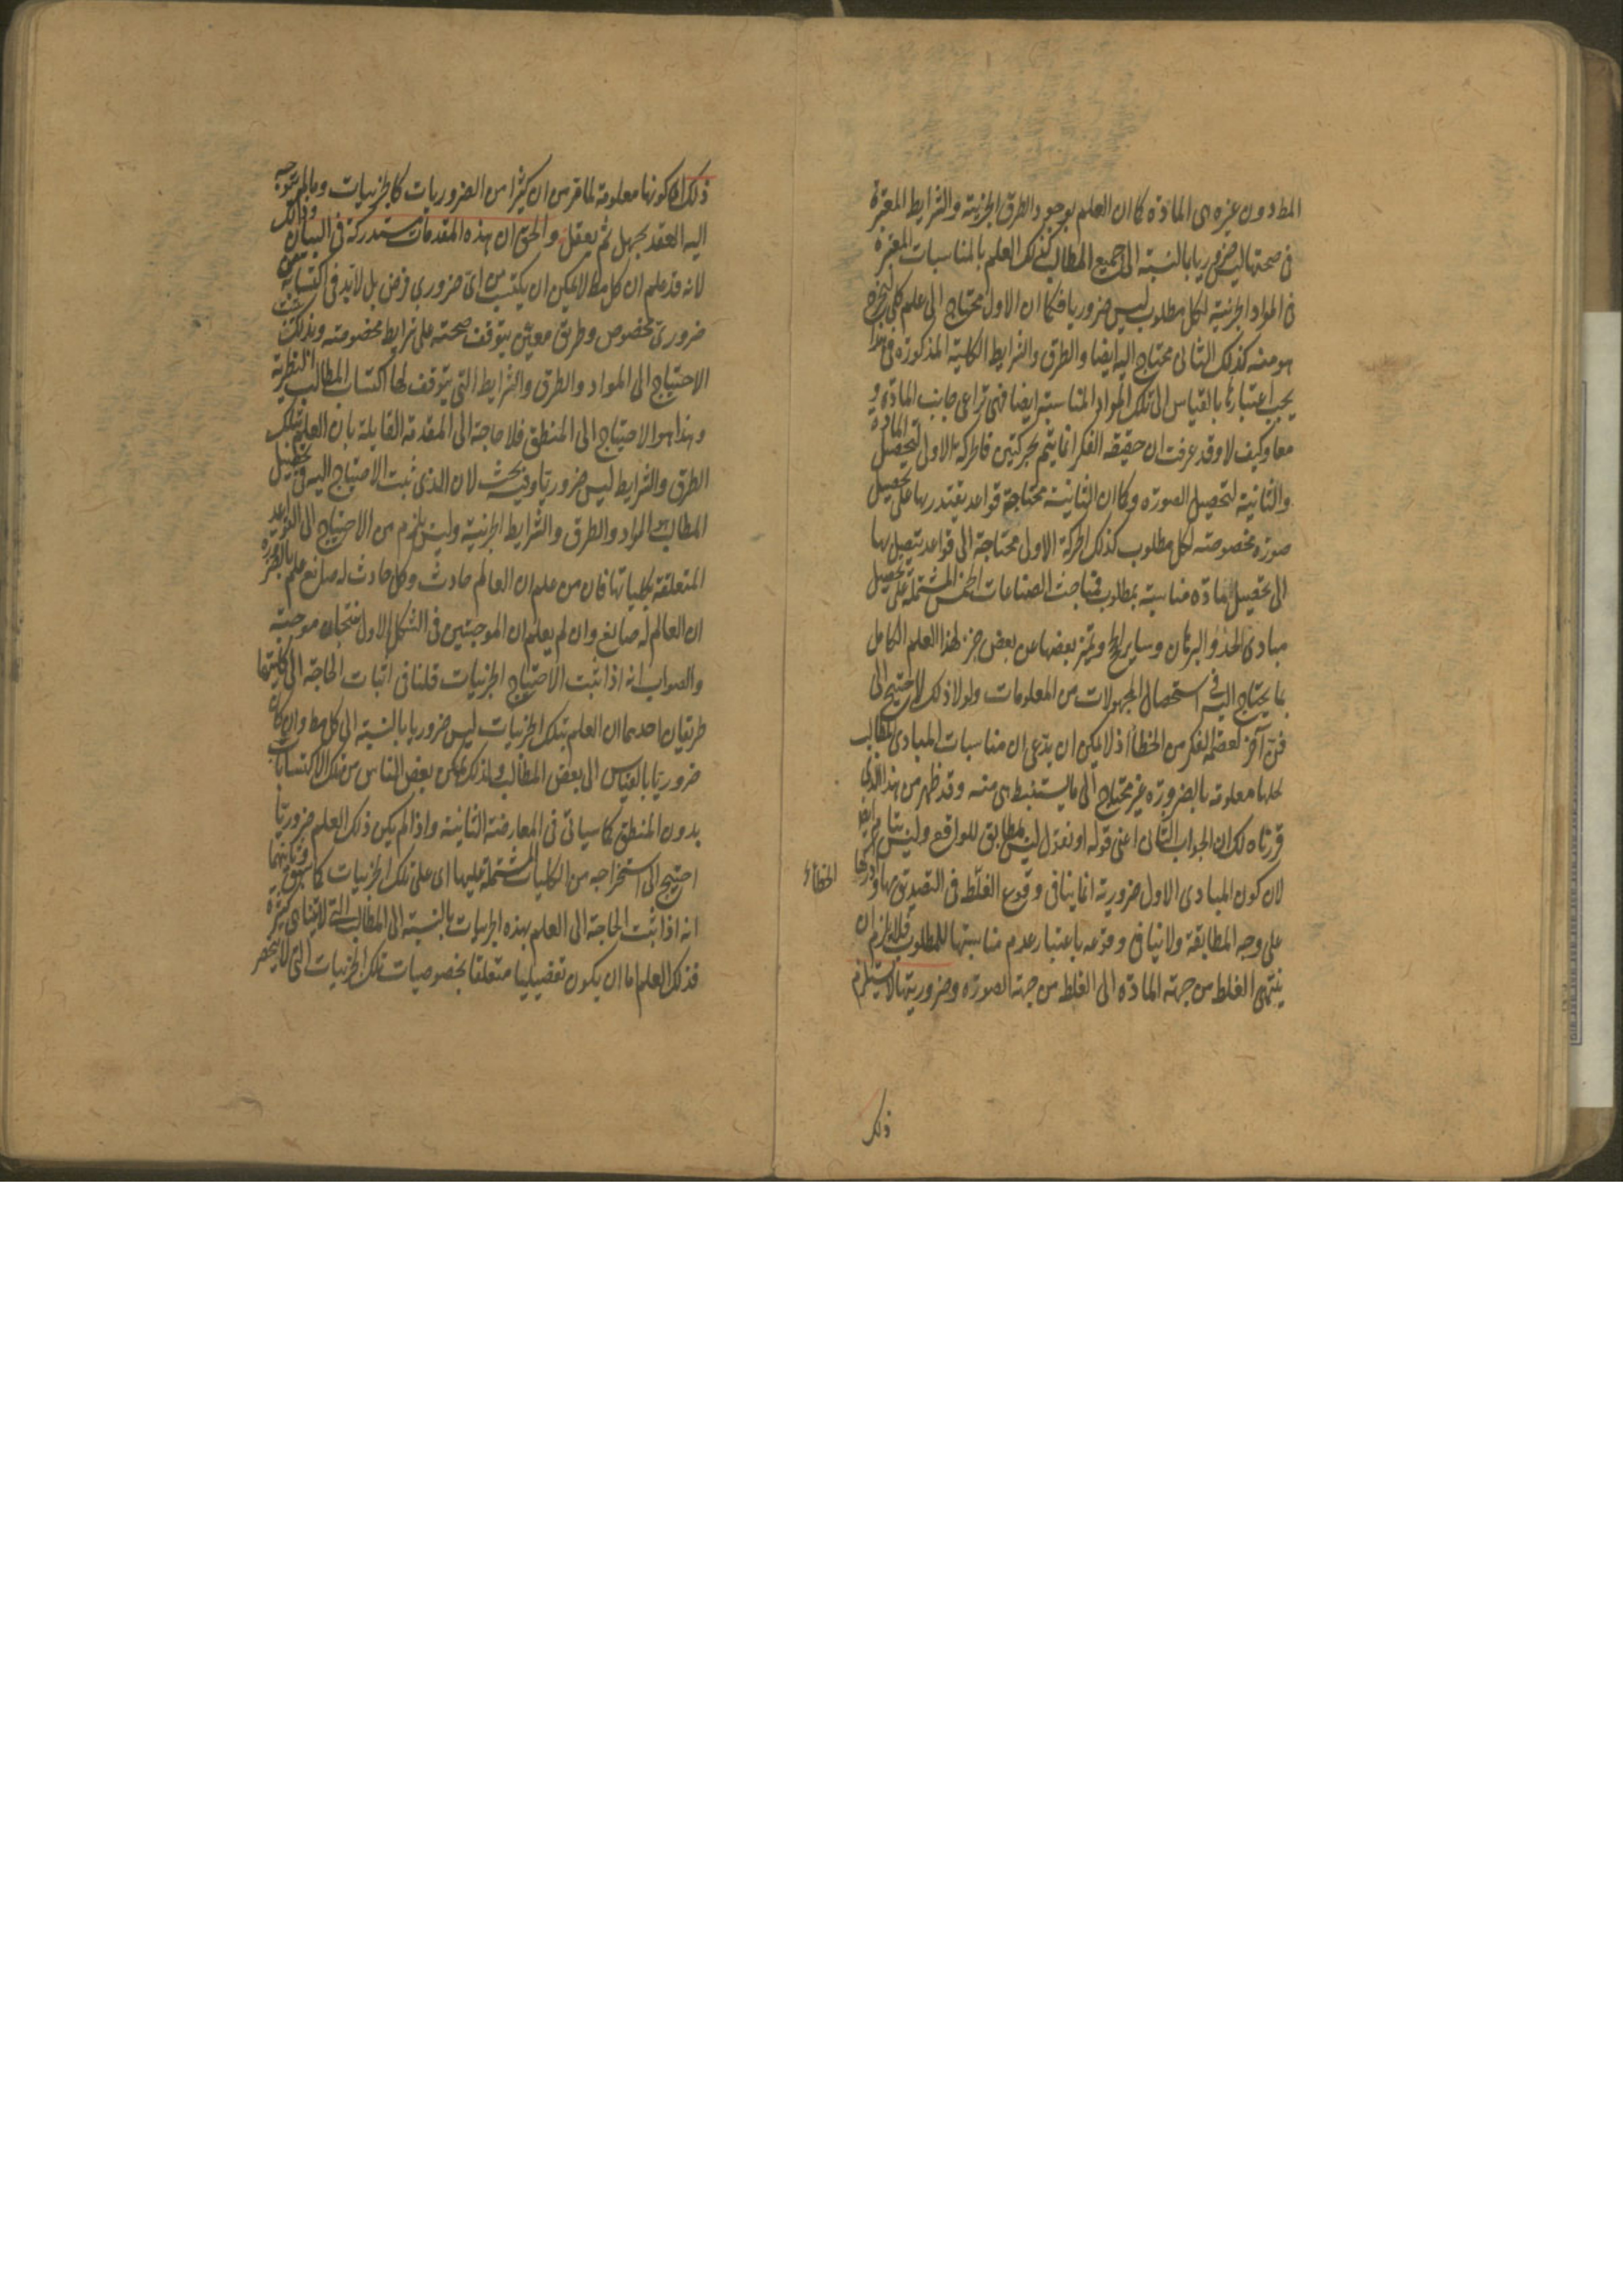 المط دون غيره من المادة كما ان العلم بوجود الطرق الجزئية والشرايط المعتبرة
فى صحتها ليس ضروريا بالنسبة الى جميع المطالب كذلك العلم بالمناسبات المعتبرة
فى المواد الجزئية لكل مطلوب ليس ضروريا فكما ان الاول محتاج الى علم كلى
هو منه كذلك الثانى محتاج اليه ايضا والطرق والشرايط الكلية المذكورة فى هذا
يجب اعتبارها بالقياس الى تلك المواد المناسبة ايضا فهى تراعى جانب المادة و
معا وكيف لا وقد عرفت ان حقيقة الفكر انما يتم بحركتين فالحركة الاولى لتحصيل المادة
والثانية لتحصيل الصورة وكما ان الثانية محتاجة قواعد يقتدر بها على تحصيل
صورة مخصوصة لكل مطلوب كذلك الحركة الاولى محتاجة الى قواعد يتصل بها
الى تحصيل مادة مناسبة بمطلوب فمباحث الصناعات الخمس المشتملة على تحصيل
مبادى الحد والبرهان وساير الحجج وتميز بعضها عن بعض جزء لهذا العلم الكامل
بما يحتاج اليه فى استحصال المجهولات من المعلومات ولولا ذلك لاحتيج الى
فن آخر لعصمة الفكر من الخطأ اذ لا يمكن ان يدعى ان مناسبات المبادى للمطالب
كلها معلومة بالضرورة غير محتاج الى ما يستنبط هى منه وقد ظهر من هذا الذى
قررناه لك ان الجواب الثانى اعنى قوله او نقول ليس بمطابق للواقع وليس بتام ايضا
لان كون المبادى الاول ضرورية انما ينافى وقوع الغلط فى التصديق بها وادراكها
الخطاء
على وجه المطابقة ولا ينافى وقوعه باعتبار عدم مناسبتها للمطلوب فلا يلزم ان
ينتهى الغلط من جهة المادة الى الغلط من جهة الصورة وضروريتها لا يستلزم
ذلك
ذلك كونها معلومة لما قر من ان كثيرا من الضروريات كالجزئيات وما لم يتوجه
اليه العقد بجهل ثم يعقل والحق ان هذه المقدمات مستدركة فى البيان وذلك
لانه قد علم ان كل مط لا يمكن ان يكتسب من اى ضرورى فرض بل لا بد فى اكتسابه من
ضرورى مخصوص وطريق معين يتوقف صحته على شرايط مخصوصة وبذلك ثبت
الاحتياج الى المواد والطرق والشرايط التى يتوقف لها اكتساب المطالب النظرية
وهذا هو الاحتياج الى المنطق فلا حاجة الى المقدمة القايلة بان العلم بتلك
الطرق والشرايط ليس ضروريا وفيه بحث لان الذى ثبت الاحتياج اليه فى تحصيل
المطالب هو المواد والطرق والشرايط الجزئية وليس يلزم من الاحتياج الى القواعد
المتعلقة بكلياتها فان من علم ان العالم حادث وكل حادث له صانع علم بالضرورة
ان العالم له صانع وان لم يعلم ان الموجبتين فى الشكل الاول ينتجان موجبة
والصواب انه اذا ثبت الاحتياج الجزئيات قلنا فى اثبات الحاجة الى كليتها
طريقان احدهما ان العلم بتلك الجزئيات ليس ضروريا بالنسبة الى كل مط وان كان
ضروريا بالقياس الى بعض المطالب ولذلك تمكن بعض الناس من تلك الاكتسابات
بدون المنطق كما سياتى فى المعارضة الثانية واذا لم يكن ذلك العلم ضروريا
احتيج الى استخراجه من الكليات المشتملة عليها اى على تلك الجزئيات كما سبق وثانيهما
انه اذا ثبت الحاجة الى العلم بهذه الجزئيات بالنسبة الى المطالب التى لا تتناهى كثرة
فذلك العلم اما ان يكون تفصيليا متعلقا بخصوصيات تلك الجزئيات التى لا ينحصر